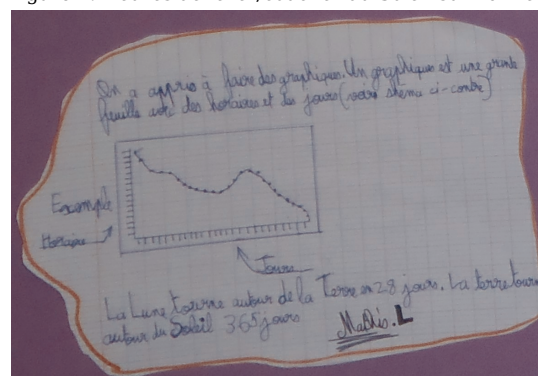 On a appris à faire des graphiques. Un graphiques est une grande
feuille avec des horaires et des jours (voir shema ci-contre)
Exemple
Horaire
Jours
La Lune tourne autour de la Terre en 28 jours. La terre tourne
autour du Soleil 365 jours
Mathis.L